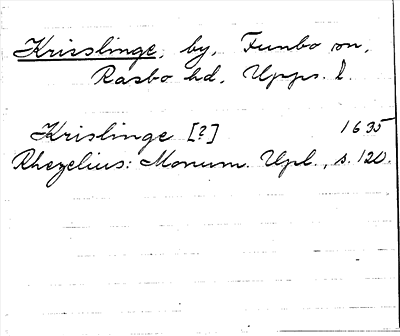 Krisslinge, by, Funbo sn,
Rasbo hd, Upps. l.
Krislinge [?] 1635
Rhezelius: Monum. Upl., s. 120.